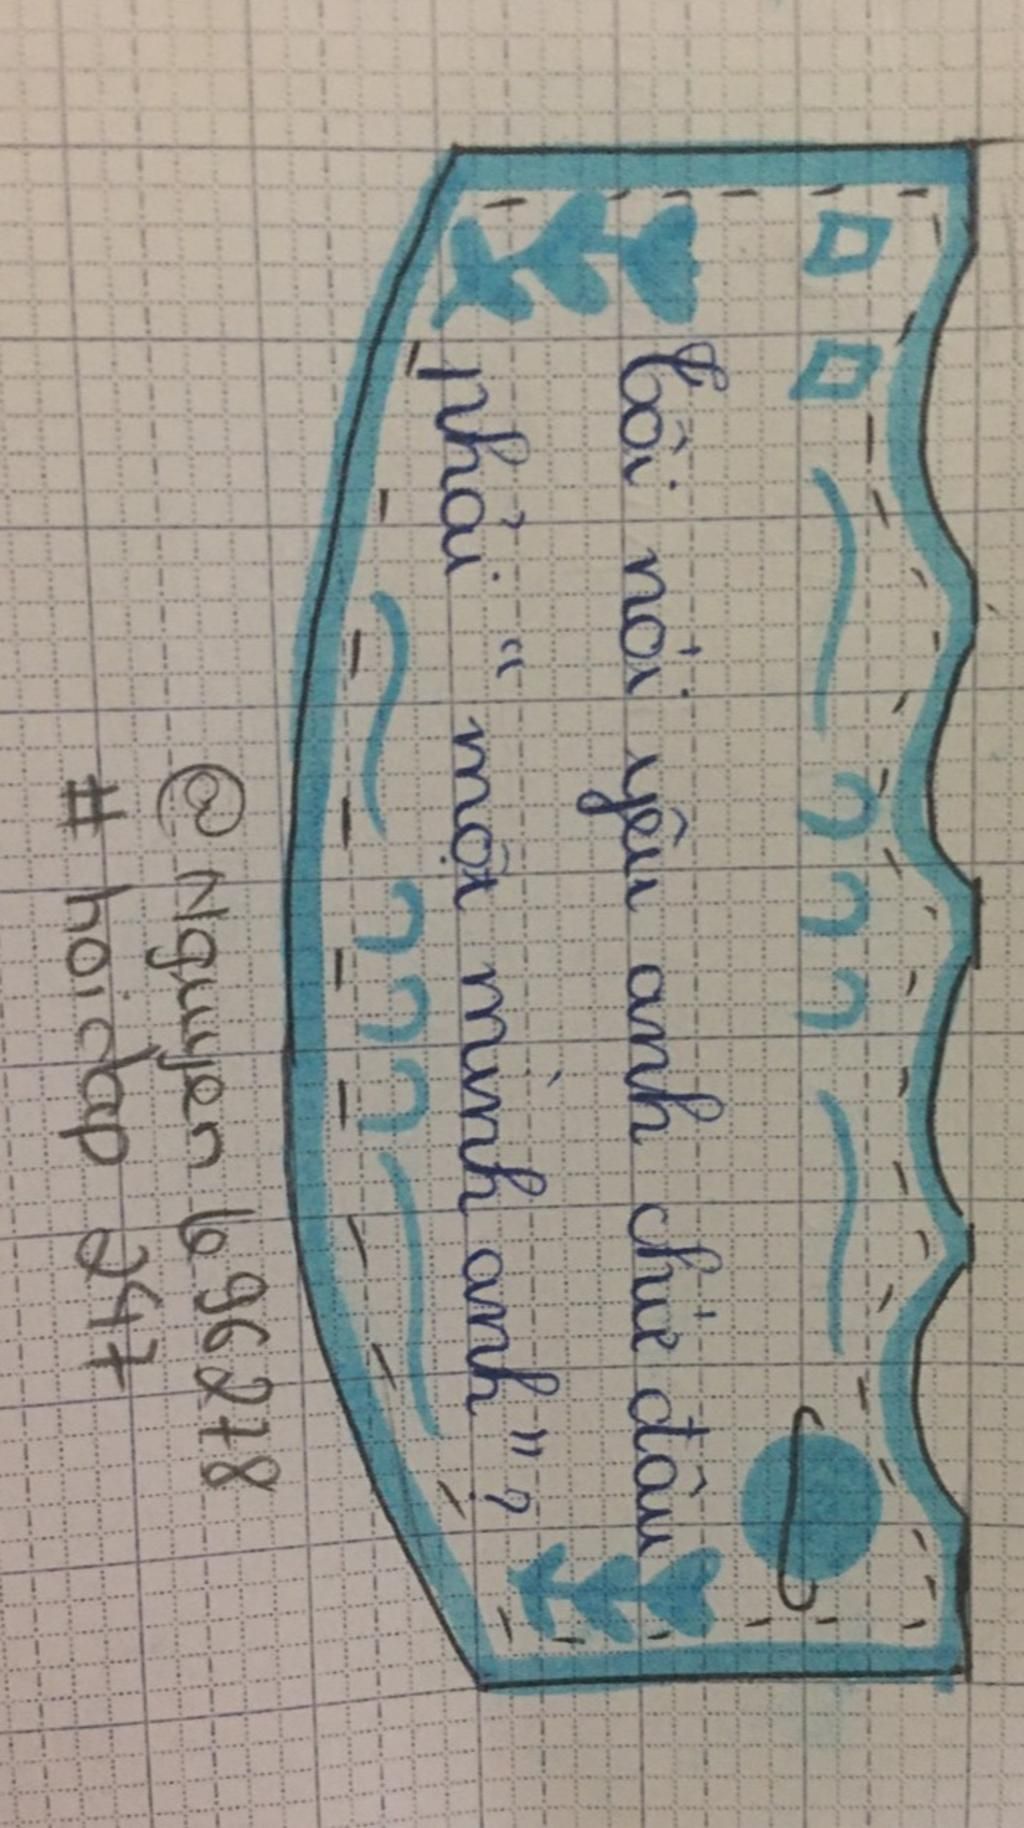 Tôi nói yêu anh chứ đâu
phải " một mình anh " ?
@ Nguyen 696278
# hoidap 247